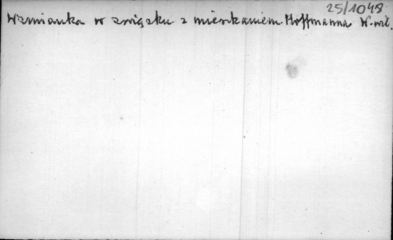 25/1048
Wzmianka w związku z mieszkaniem Hoffmanna W-wł.